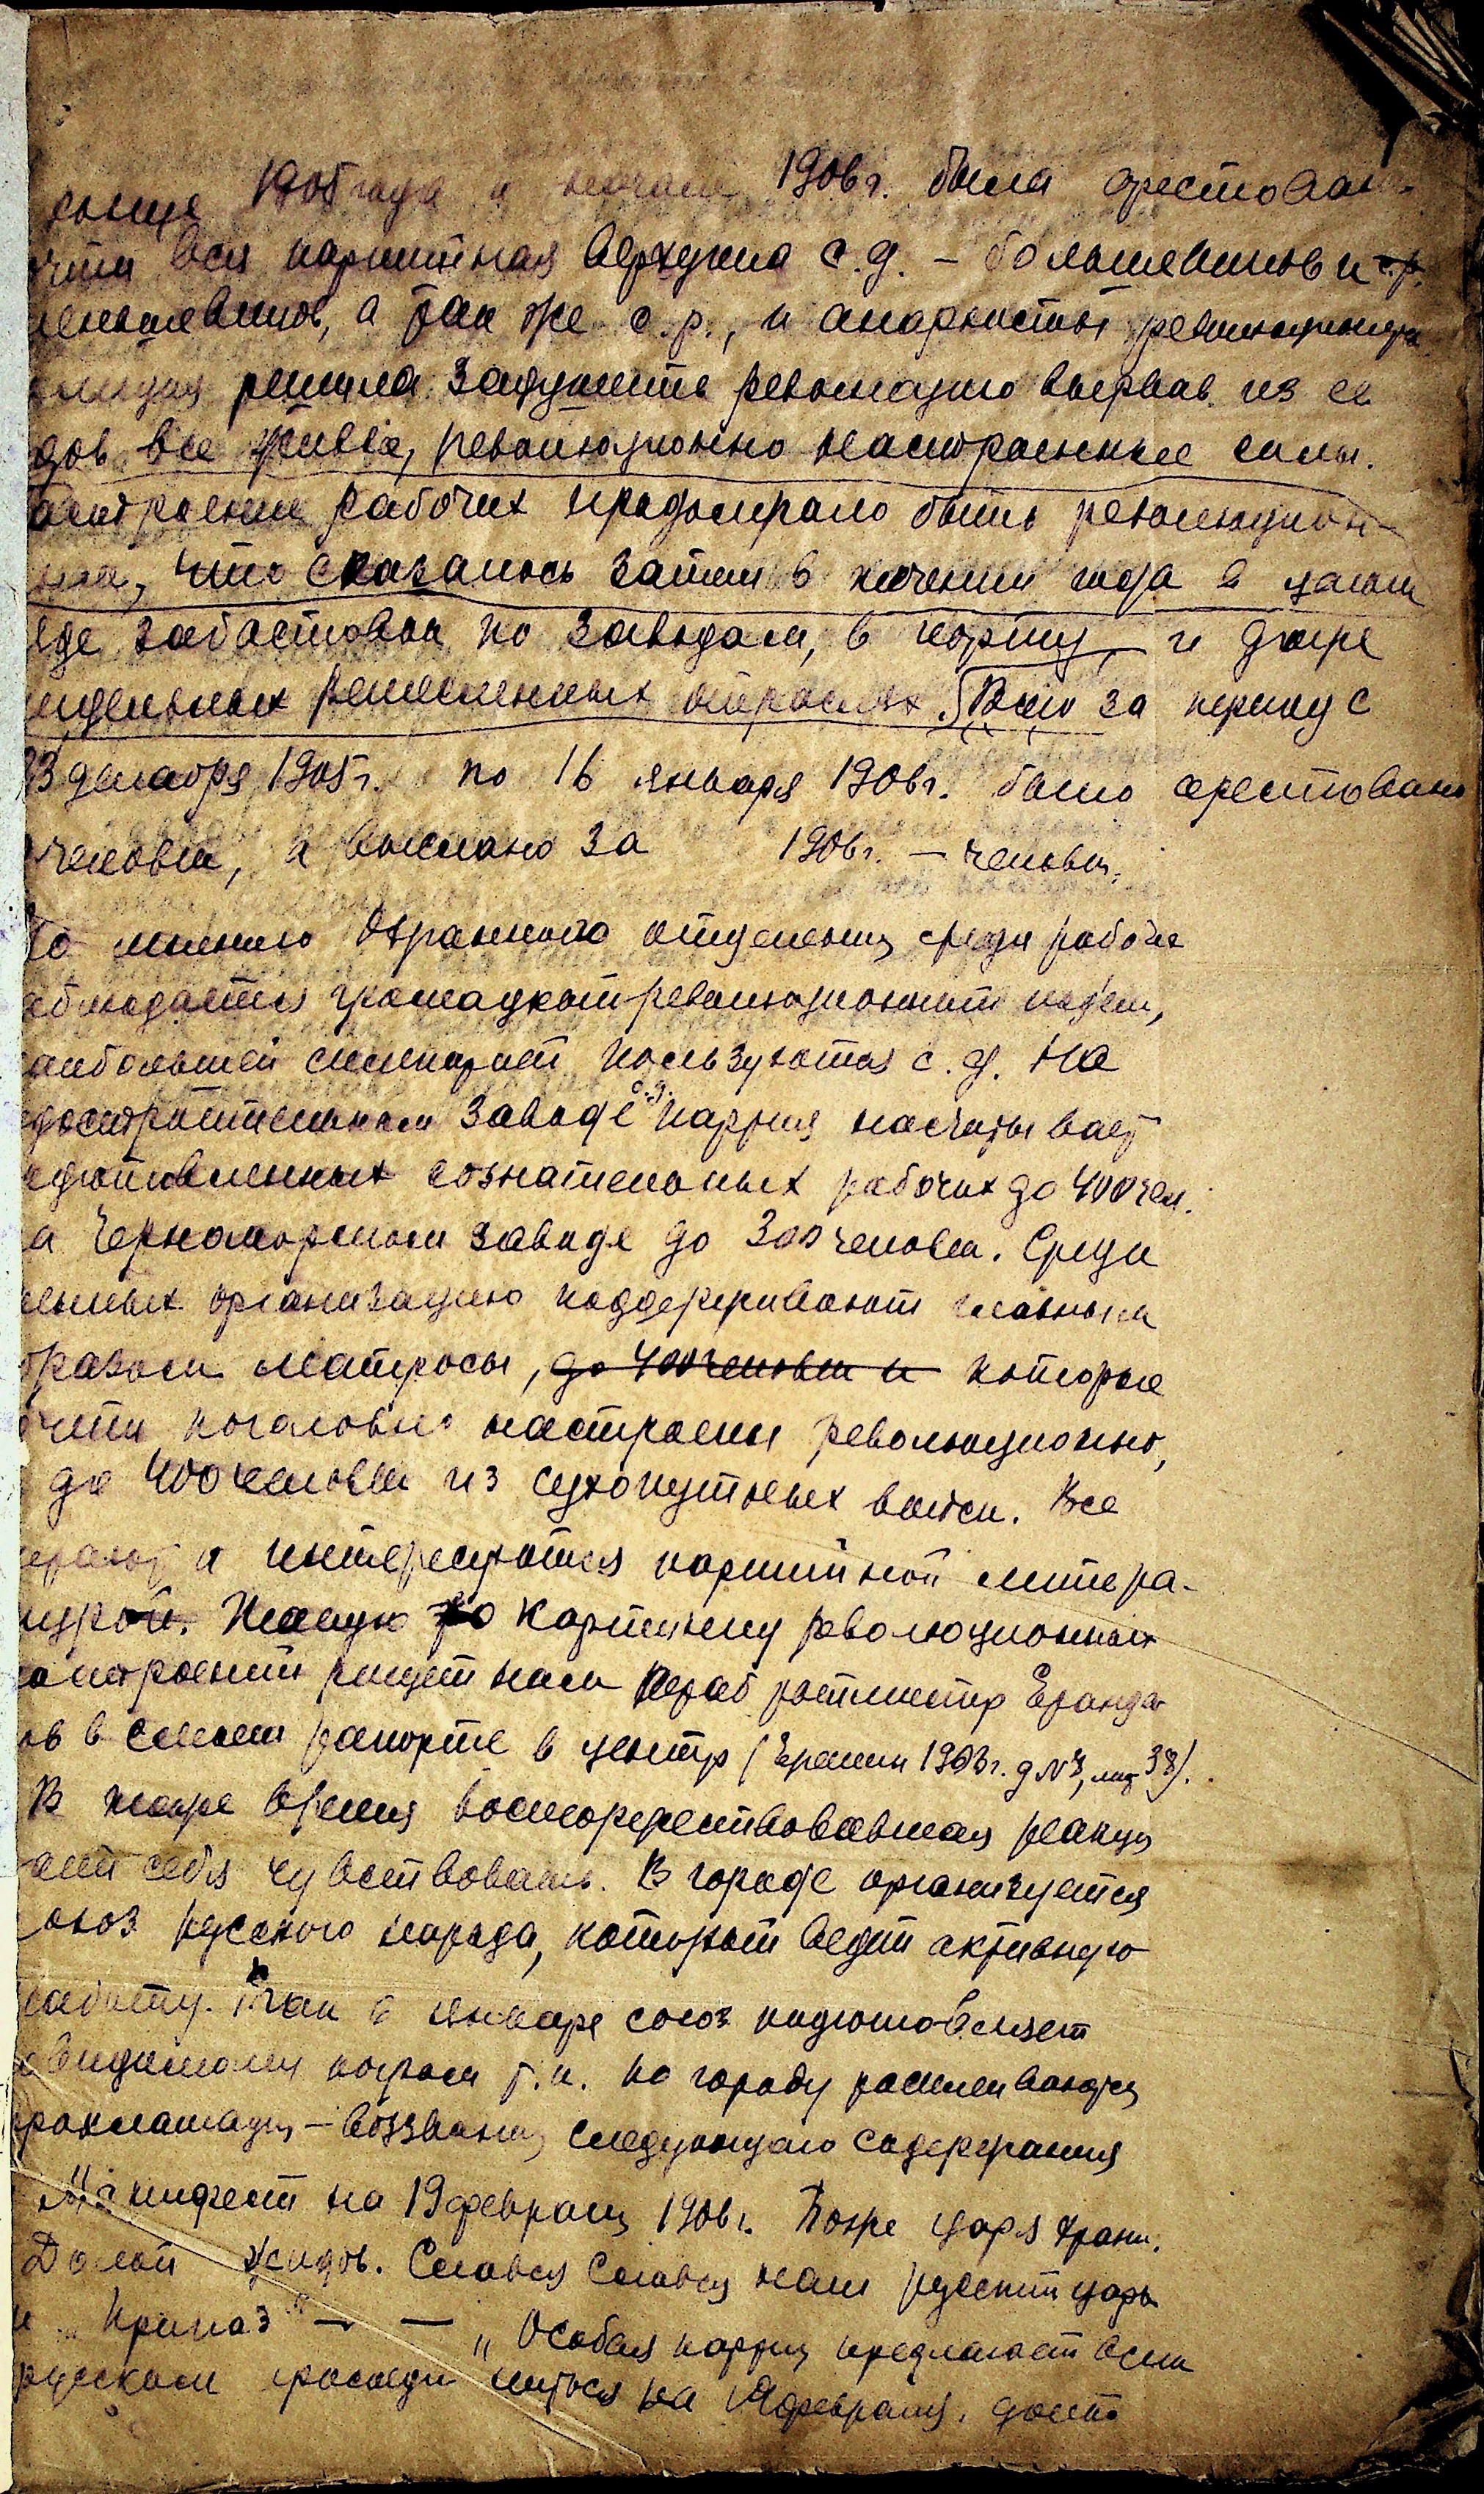 конце 1905 года и начале 1906 г. была арестован
чти вся партийная верхушка с.д. – большевиков и с.р.
меньшевиков, а так же с.р., и анархистов
решила задушить революцию вырвав из ея
дов все живые, революционно настроенные силы.
астроение рабочих продолжало быть революцион-
ное, что сказалось затем в течении года в целом
яде забастовок по заводам, в порту, и даже
тдельных ремесленных отраслях. Всего за период с
23 декабря 1905 г. по 16 января 1906 г. было арестовано
человек, и выслано за 1906 г. – человек.
По мнению Охранного отделения среди рабочих
аблюдается громадный революционный подъем,
аибольшей симпатией пользуются с.д. На
достроительном заводе с.д. партия насчитывает
одготовленных сознательных рабочих до 400 чел.
а Черноморском заводе до 300 человек. Среди
енных организацию поддерживают главным
бразом матросы, до 400 человек и которые
очти поголовно настроены революционно,
до 400 человек из сухопутных войск. Все
итают и интересуются партийной литера-
турой. Такую картину революционных
астроений рисует нам ротмистр Еранда
ов в своем рапорте в центр (Хранил 1906 г. д №4, лит 38).
В тоже время восторжествовавшая реакция
ает себя чувствовать. В городе организуется
союз русского народа, который ведет активную
работу. Так в январе союз подготовляет
овидимому погром т.к. по городу расклеиваются
прокламации – воззвания следующего содержания
Манифест на 19 февраля 1906 г. Боже царя храни.
Долой жидов. Славься Славься наш русский царь
и „Приказ“ — — „Особая партия предлагает всем
русским громадиться на 19 февраля,